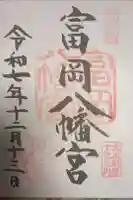 富岡八幡宮
令和七年十二月十二日